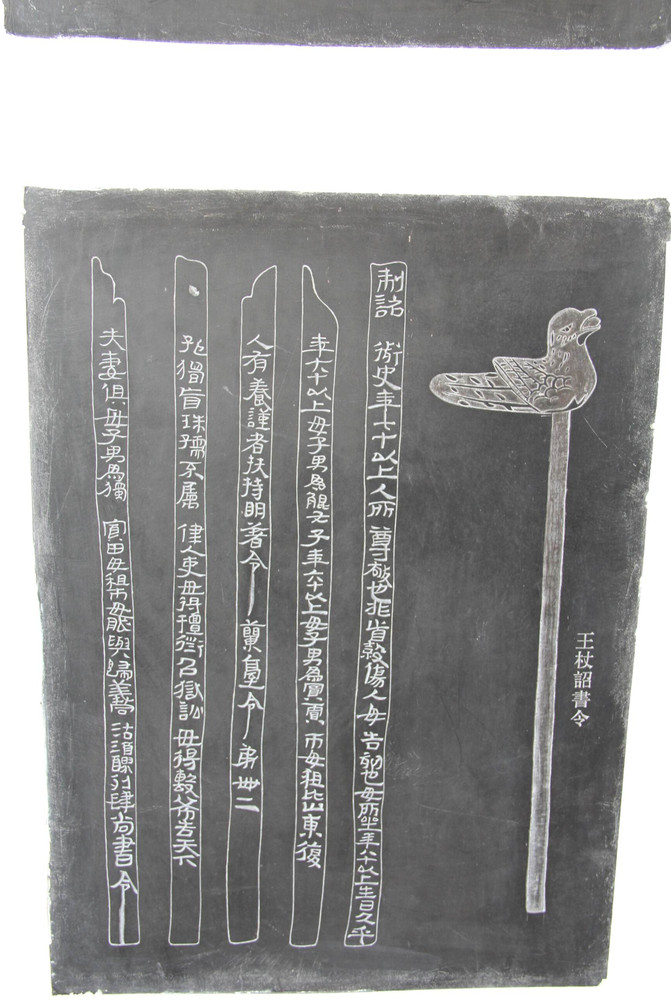 王杖詔書令
制詔 御史年七十以上人所尊敬也非首殺傷人毋告劾也毋所坐年八十以上生日久乎
年六十以上毋子男為鯤女子年六十以上毋子男為寡賈市毋租比山東復
人有養謹者扶持明著令 蘭臺令弟卌二
孤獨盲珠孺不屬律人吏毋得擅徵召獄訟毋得毄布告天下
夫妻俱毋子男為獨寡田毋租市毋賦與歸義同沽酒醪列肆尚書令